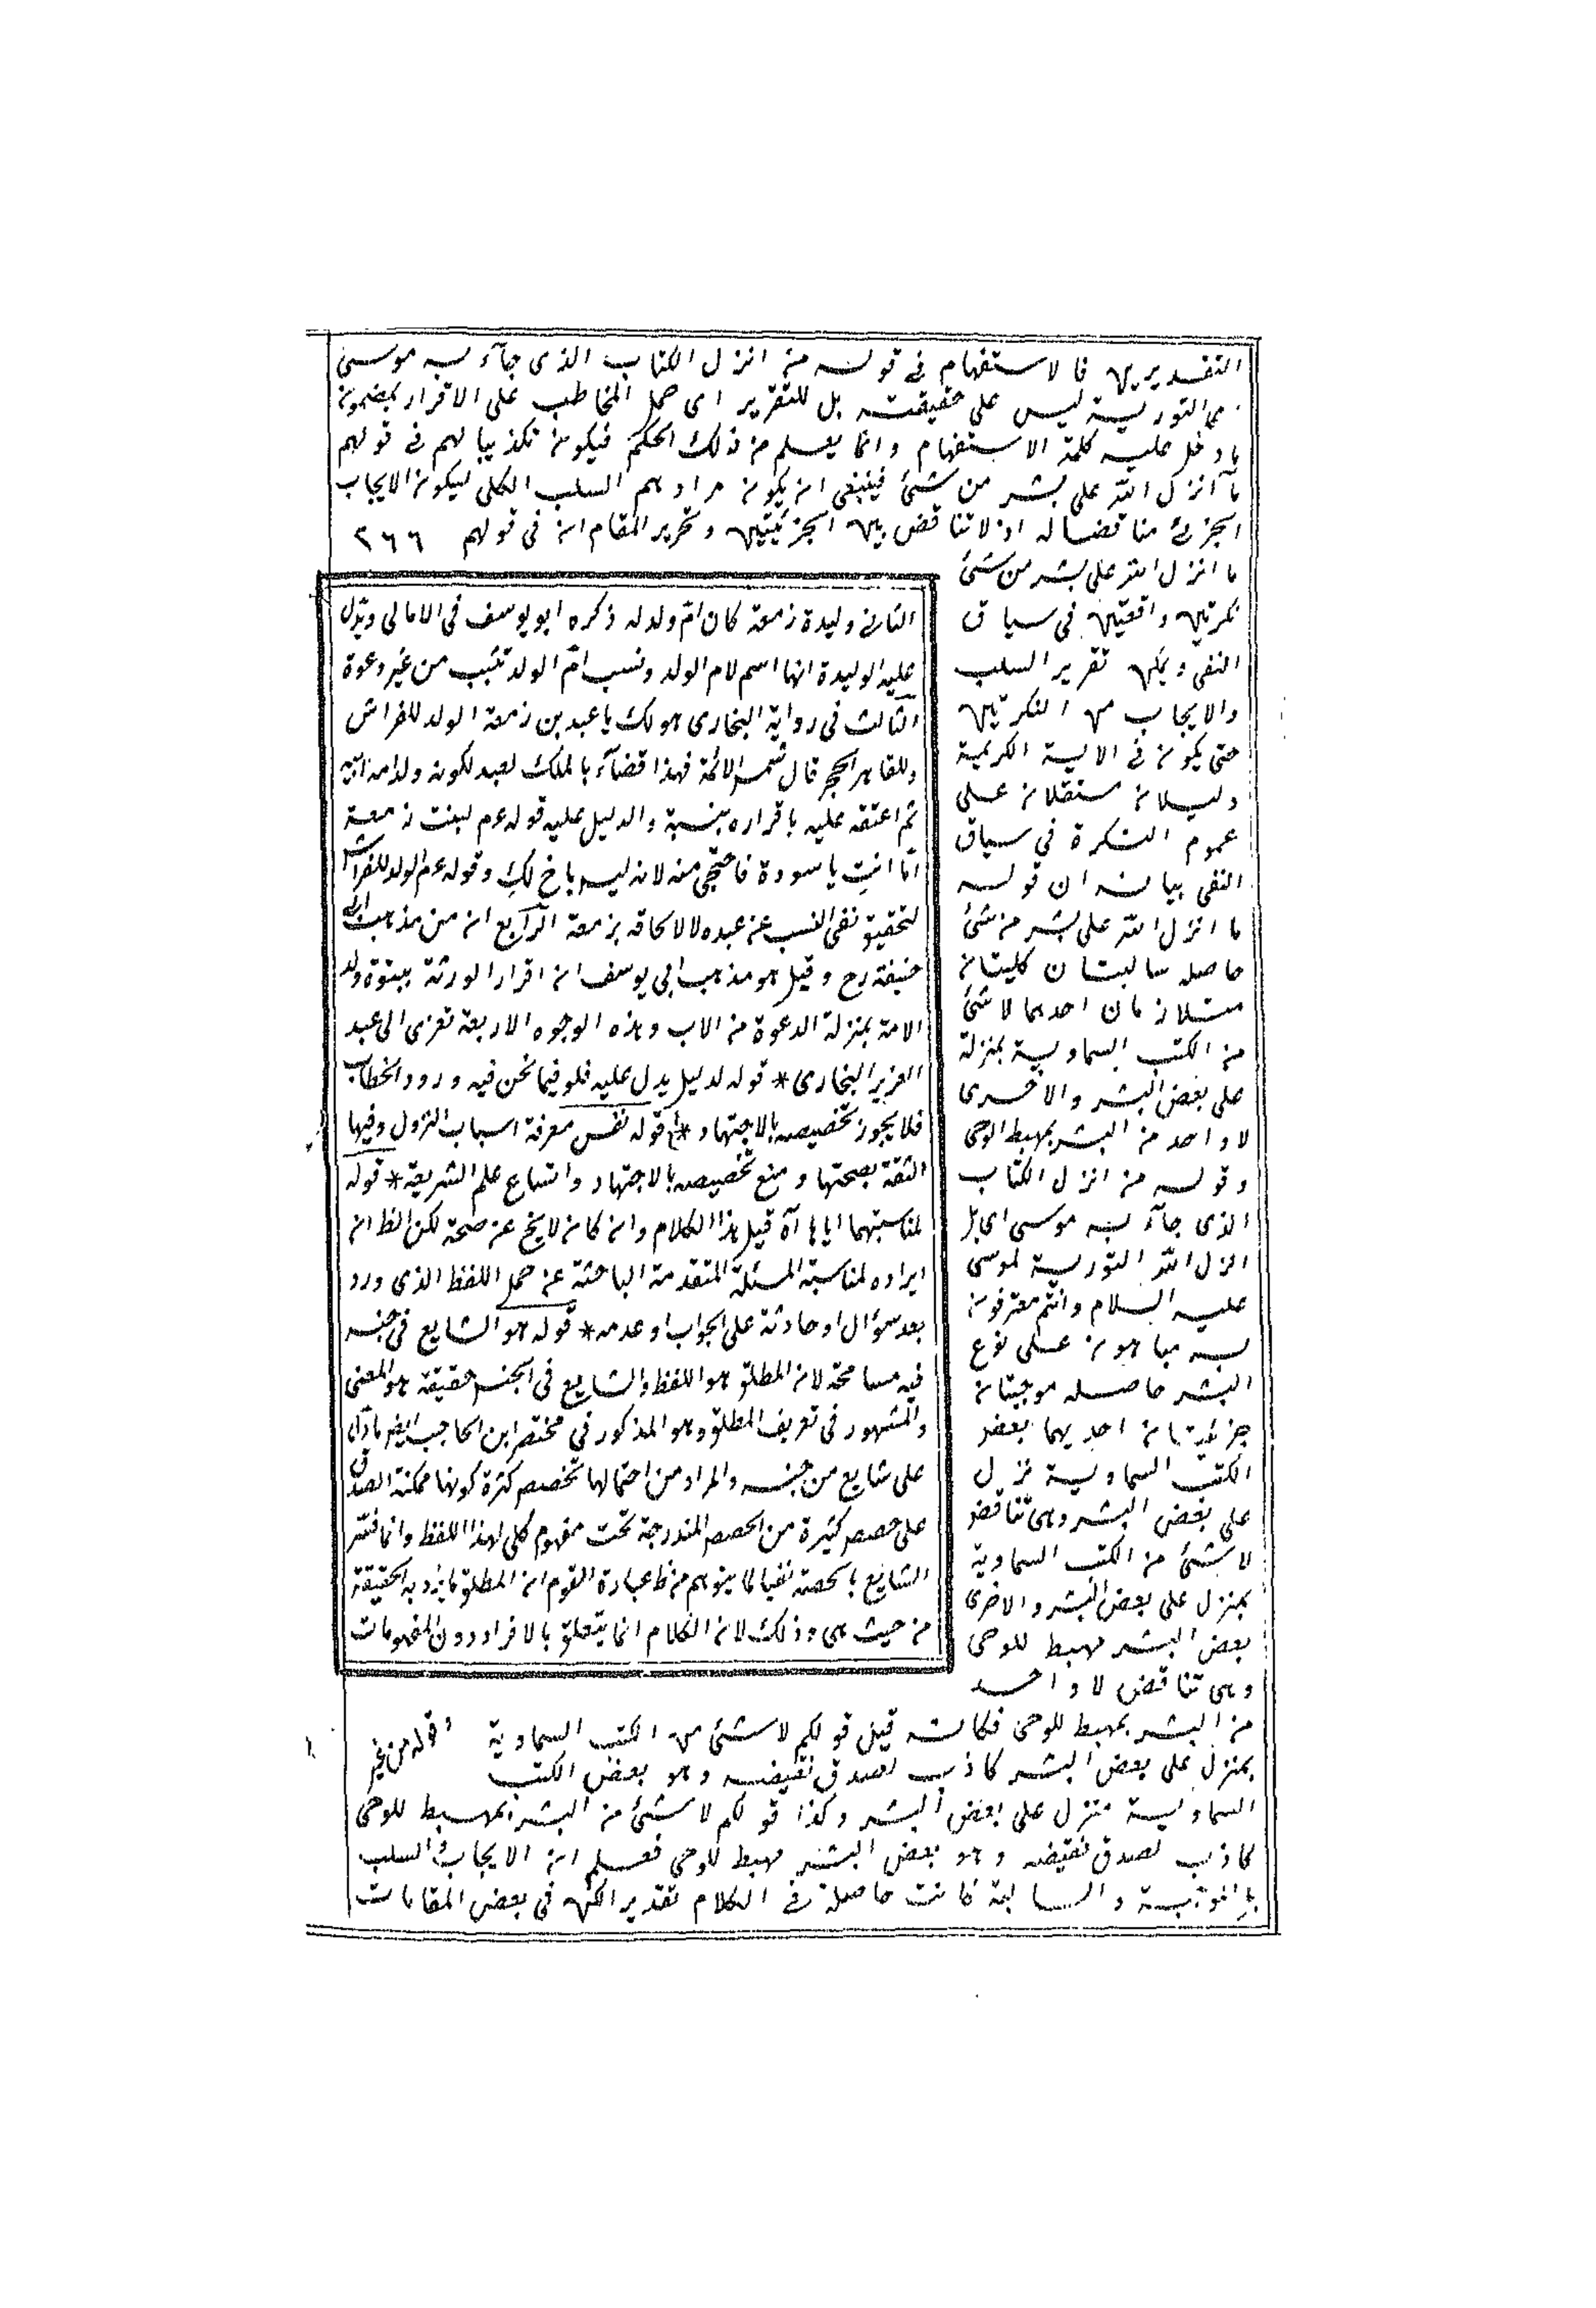 التقديرين فالاستفهام فى قوله من انزل الكتاب الذى جآء به موسى
التورية ليس على حقيقته بل للتقرير اى حمل المخاطب على الاقرار بمضمون
ما دخل عليه كلمة الاستفهام وانما يعلم من ذلك الحكم فيكون تكذيبا لهم فى قولهم
مآ انزل الله على بشر من شئ فينبغى ان يكون مرادهم السلب الكلى ليكون الايجاب
الجزئى مناقضا له اذ لا تناقض بين الجزئيتين وتحرير المقام ان فى قولهم ٢٦٦
ما انزل الله على بشر من شئ
نكرتين واقعتين فى سياق
النفى ويمكن تقرير السلب
والايجاب من النكرتين
حتى يكون فى الاية الكريمة
دليلان مستقلان على
عموم النكرة فى سياق
النفى بيانه ان قوله
ما انزل الله على بشر من شئ
حاصله سالبتان كليتان
متلازمان احديهما لا شئ
من الكتب السماوية بمنزلة
على بعض البشر والاخرى
لا واحد من البشر بمهبط الوحى
وقوله من انزل الكتاب
الذى جآء به موسى اى بل
انزل الله التورية لموسى
عليه السلام وانتم معترفون
به مباهون على نوع
البشر حاصله موجبتان
جزئيتان احديهما بعض
الكتب السماوية نزل
على بعض البشر وهى تناقض
لا شئ من الكتب السماوية
بمنزل على بعض البشر والاخرى
بعض البشر مهبط للوحى
وهى تناقض لا واحد
من البشر بمهبط للوحى فكانه قيل قولكم لا شئ من الكتب السماوية
بمنزل على بعض البشر كاذب لصدق نقيضه وهو بعض الكتب
السماوية منزل على بعض البشر وكذا قولكم لا شئ من البشر بمهبط للوحى
كاذب لصدق نقيضه وهو بعض البشر مهبط للوحى فعلم ان الايجاب والسلب
والسالبة كانت حاصلة فى الكلام تقدير الكن فى بعض المقامات
قوله من غير
الثانى وليدة زمعة كان ام ولد له ذكره ابو يوسف فى الامالى ويدل
عليه الوليدة انها اسم لام الولد ونسب ام الولد تثبت من غير دعوة
الثالث فى رواية البخارى هو لك يا عبد بن زمعة الولد للفراش
وللعاهر الحجر قال شمس الائمة فهذا قضآء بالملك لعبد لكونه ولد امة ابيه
ثم اعتقه عليه باقراره بنسبه والدليل عليه قوله عم لبنت زمعة
اما انت يا سودة فاحتجبى منه لانه ليس باخ لك وقوله عم الولد للفراش
لتحقيق نفى النسب عن عبده لا لالحاقه بزمعة الرابع ان من مذهب ابى
حنيفة رح وقيل هو مذهب ابى يوسف ان اقرار الورثة ببنوة ولد
الامة بمنزلة الدعوة من الاب وهذه الوجوه الاربعة تعزى الى عبد
العزيز البخارى * قوله لدليل يدل عليه فلو فيما نحن فيه ورود الخطاب
فلا يجوز تخصيصه بالاجتهاد * قوله نفس معرفة اسباب النزول وفيها
الثقة بصحتها ومنع تخصيصه بالاجتهاد واتساع علم الشريعة * قوله
لمناسبتهما اياها آه قيل هذا الكلام وان كان لا يخ عن صحة لكن الظ ان
ايراده لمناسبة المسئلة المتقدمة الباحثة عن حمل اللفظ الذى ورد
بعد سؤال او حادثة على الجواب او عدمه * قوله هو الشايع فى جنسه
فيه مسامحة لان المطلق هو اللفظ والشايع فى الجنس حقيقة هو المعنى
والمشهور فى تعريف المطلق وهو المذكور فى مختصر ابن الحاجب ايضا ما دل
على شايع من جنسه والمراد من احتمالها لحصص كثرة كونها ممكنة الصدق
على حصص كثيرة من الحصص المندرجة تحت مفهوم كلى لهذا اللفظ وانما فسر
الشايع بالحصة نفيا لما يتوهم من ظ عبارة القوم ان المطلق ما يراد به الحقيقة
من حيث هى وذلك لان الكلام انما يتعلق بالافراد دون المفهومات